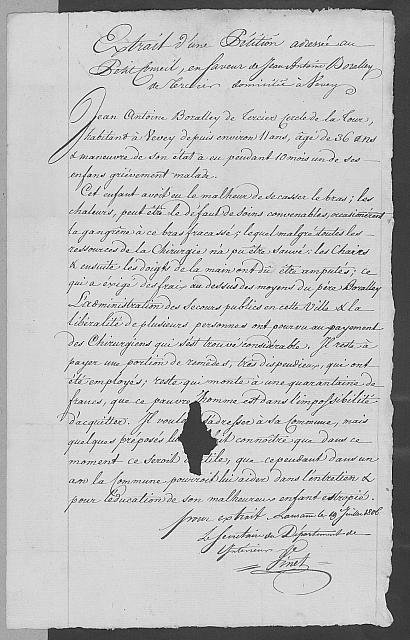 Extrait d'une Pétition adressée au
Petit Conseil, en faveur de Jean Antoine Boralley
de Cercier domicilié à Vevey
Jean Antoine Boralley de Cercier Cercle de la Tour,
habitant à Vevey depuis environ 11 ans, âgé de 36 ans
& manœuvre de son état à eu pendant 10 mois un de ses
enfans grièvement malade.
Cet enfant avoit eu le malheur de se casser le bras; les
chaleurs, peut etre le défaut de soins convenables, occasionèrent
la gangrène à ce bras fracassé; lequel malgré toutes les
ressources de la Chirurgie n'a pu être sauvé: les Chairs
& ensuite les doigts de la main ont dû être amputés; ce
qui a éxigé des frais au dessus des moyens du père Boralley
L'administration des Secours publics en cette Ville & la
libéralité de plusieurs personnes ont pourvu au payement
des Chirurgiens qui s'est trouvé considérable. Il reste à
payer une portion de remèdes, très dispendieux, qui ont
été employés; reste qui monte à une quarantaine de
francs, que ce pauvre homme est dans l'impossibilité
d'acquitter. Il vouloit s'adresser à sa Commune, mais
quelques préposés lui connoître que dans ce
moment ce seroit inutile, que cependant dans un
an la Commune pourroit lui aider dans l'entretien &
pour l'éducation de son malheureux enfant estropié.
pour extrait Lausanne le 19 Juillet 1806
Le Secretaire du Département de
l'Interieur
Pinet